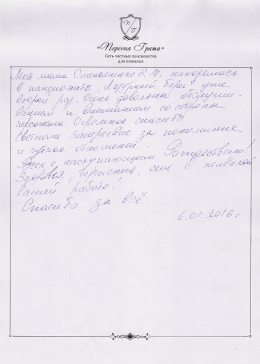 «Персона Грата»
Сеть частных пансионатов
для пожилых
Моя мама Омельяненко В.М. находилась
в пансионате „Лазурный берег" уже
второй раз. Очень довольны обслужи-
ванием и вниманием со стороны
персонала. Огромное спасибо
Светлане Захаровне за понимание
и чуткое отношение.
Всех с наступающим Рождеством!
Здоровья, терпения, сил в нелегкой
Вашей работе!
Спасибо за всё.
6.01.2016 г